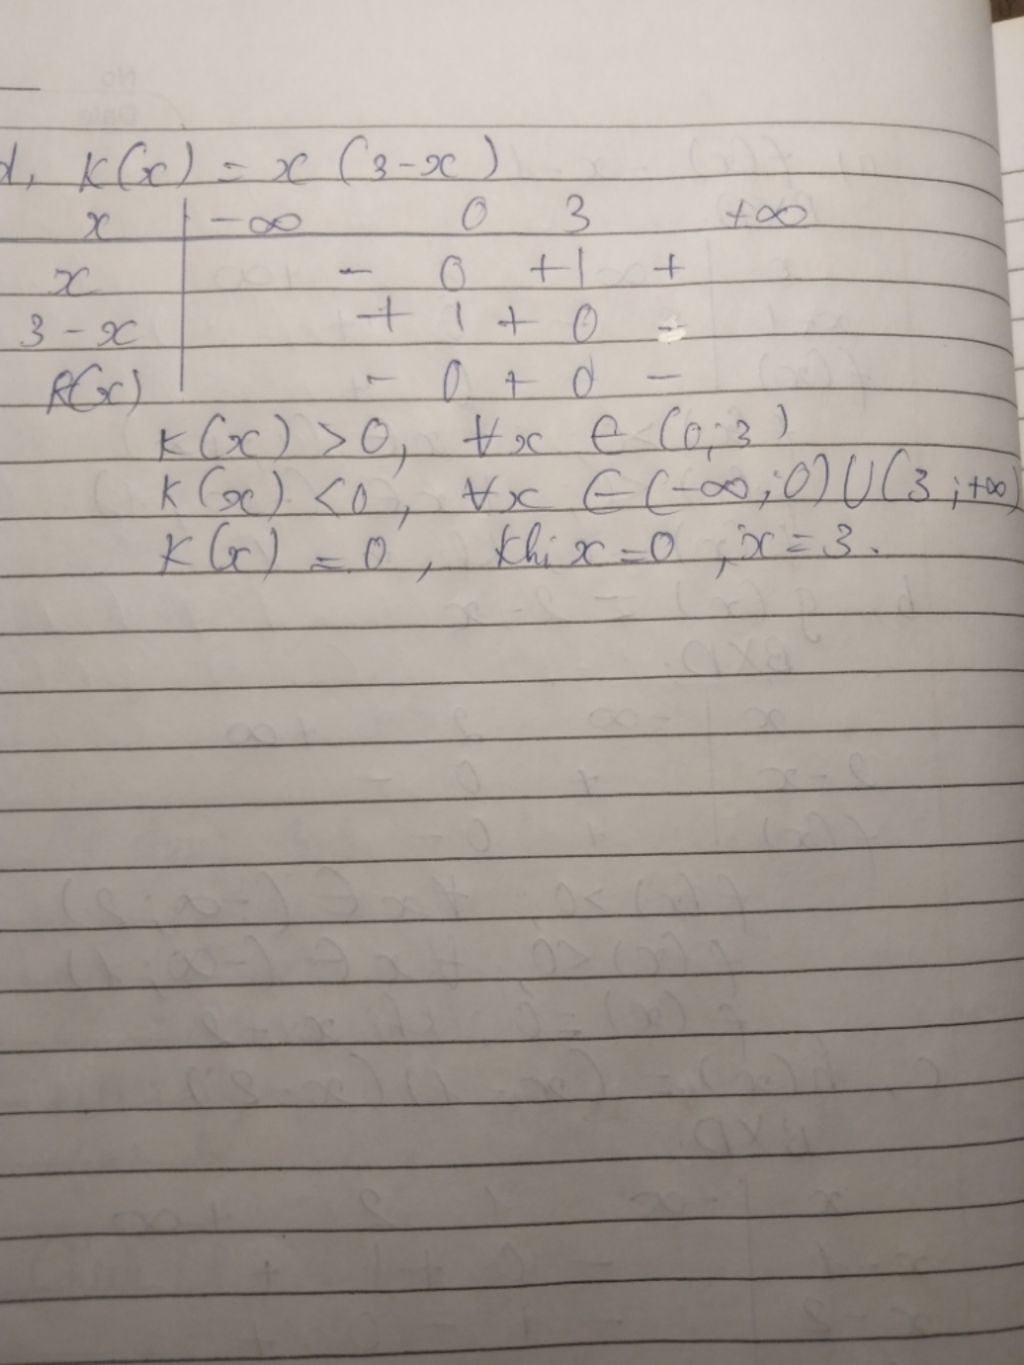 d, K(x) = x (3-x)
x | -∞ 0 3 +∞
x | - 0 + | +
3 - x | + | + 0 -
k(x) | - 0 + 0 -
K(x) > 0, ∀x ∈ (0;3)
K(x) < 0, ∀x ∈ (-∞;0) ∪ (3;+∞)
K(x) = 0, khi x = 0, x = 3.